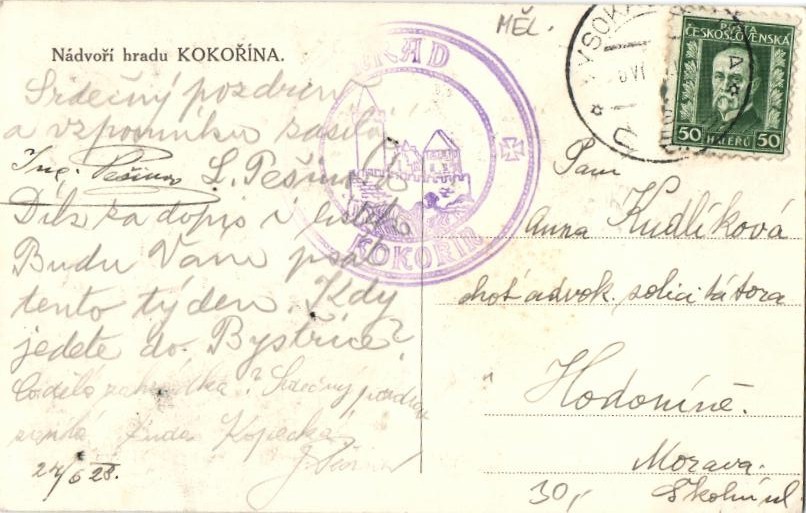 Nádvoří hradu KOKOŘÍNA.
MĚL.
HRAD
KOKOŘÍN
VYSOKÁ
POŠTA
ČESKOSLOVENSKÁ
50 HALÉŘŮ 50
Srdečný pozdrav
a vzpomínku zasílá
Ing. Pešina L. Pešinová
Dík za dopis i lístek
Budu Vám psát
tento týden. Kdy
jedete do Bystřice?
Co dělá zahrádka? Srdečný pozdrav
Kopecká
24/6 28.
Paní
Anna Kudlíková
choť advok. solicitátora
Hodoníně.
Morava.
Školní ul.
30,-